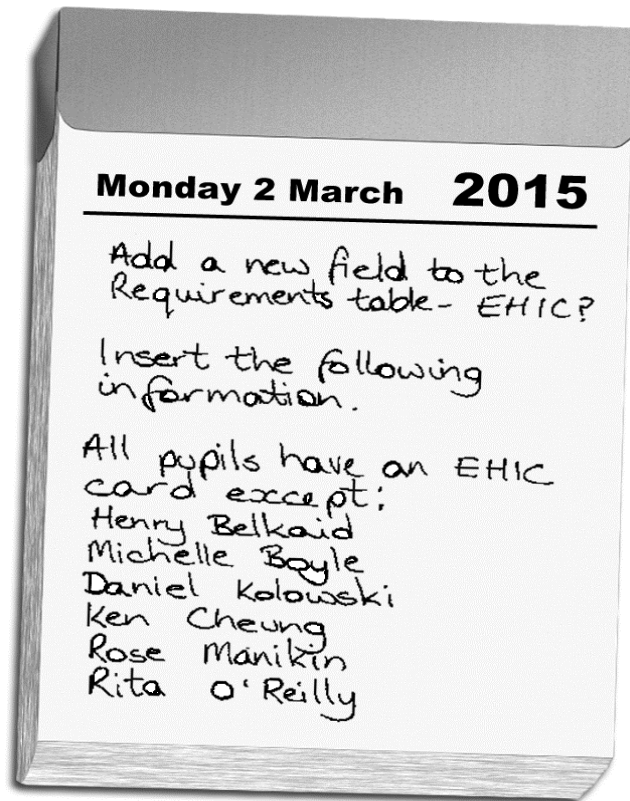 Monday 2 March 2015
Add a new field to the
Requirements table- EHIC?
Insert the following
information.
All pupils have an EHIC
card except:
Henry Belkaid
Michelle Boyle
Daniel Kolowski
Ken Cheung
Rose Manikin
Rita O'Reilly